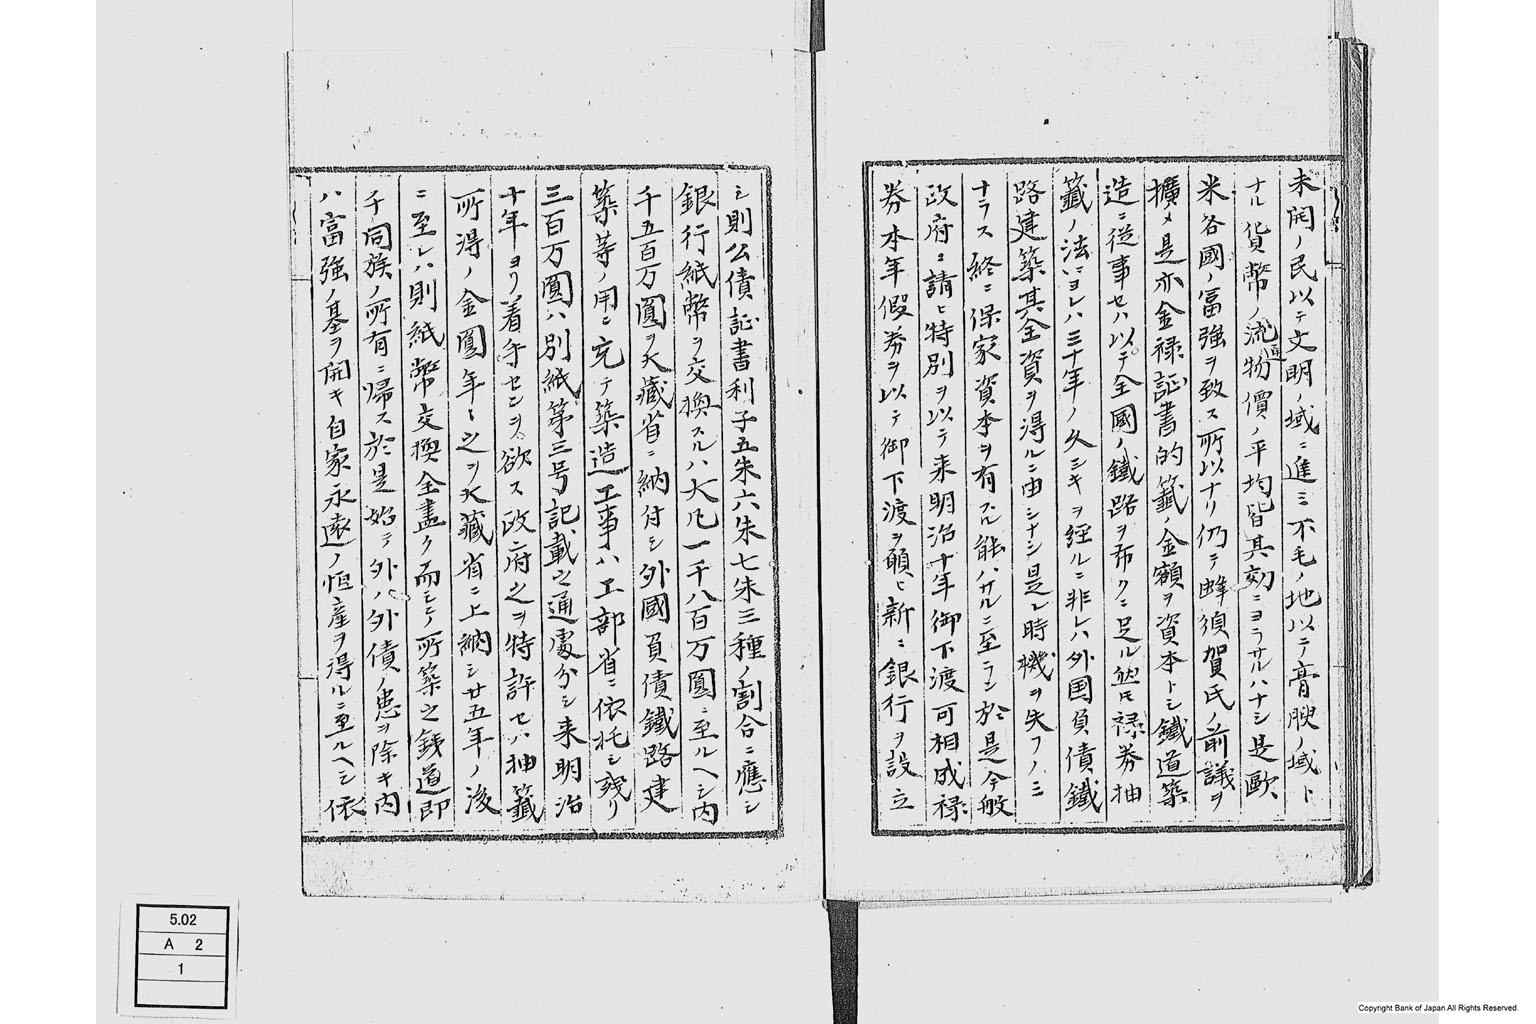 未開ノ民以テ文明ノ域ニ進ミ不毛ノ地以テ膏腴ノ域ト
ナル貨幣ノ流通物價ノ平均皆其効ニヨラサルハナシ是歐
米各國ノ富強ヲ致ス所以ナリ仍テ蜂須賀氏ノ前議ヲ
擴メ是亦金禄証書的籤ノ金額ヲ資本トシ鐵道築
造ニ従事セハ以テ全國ノ鐵路ヲ布クニ足ル然氏禄券抽
籤ノ法ニヨレハ三十年ノ久シキヲ経ルニ非レハ外国負債鐵
路建築其全資ヲ得ルニ由シナシ是レ時機ヲ失フノミ
ナラス終ニ保家資本ヲ有スル能ハサルニ至ラン於是今般
政府ニ請ヒ特別ヲ以テ来明治十年御下渡可相成禄
券本年假券ヲ以テ御下渡ヲ願ヒ新ニ銀行ヲ設立
シ則公債証書利子五朱六朱七朱三種ノ割合ニ應シ
銀行紙幣ヲ交換スルハ大凡一千八百万圓ニ至ルヘシ内
千五百万圓ヲ大藏省ニ納付シ外國負債鐵路建
築等ノ用ニ充テ築造工事ハ工部省ニ依托シ残リ
三百万圓ハ別紙第三号記載之通處分シ来明治
十年ヨリ着手センヲ欲ス政府之ヲ特許セハ抽籤
所得ノ金圓年々之ヲ大藏省ニ上納シ廿五年ノ後
ニ至レハ則紙幣交換全盡ク而シテ所築之鉄道即
千同族ノ所有ニ帰ス於是始テ外ハ外債ノ患ヲ除キ内
ハ富強ノ基ヲ開キ自家永遠ノ恒産ヲ得ルニ至ルヘシ依
5.02
A 2
1
Copyright Bank of Japan All Rights Reserved.